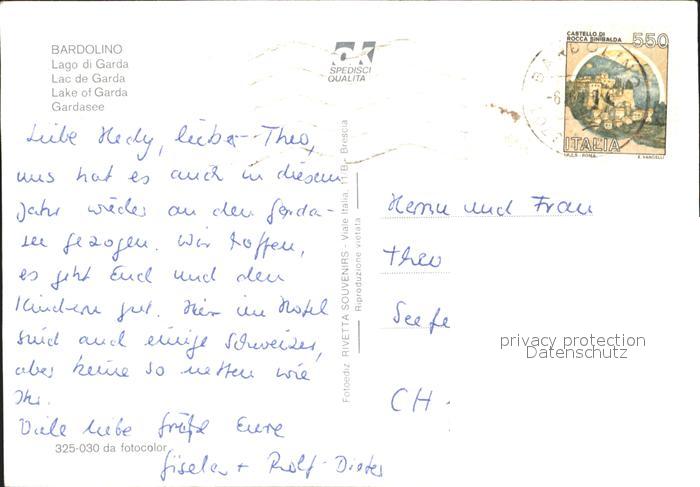 BARDOLINO
Lago di Garda
Lac de Garda
Lake of Garda
Gardasee
ak
SPEDISCI
QUALITÀ
CASTELLO DI
ROCCA SINIBALDA
550
ITALIA
I.P.Z.S. - ROMA
E. VANGELLI
Liebe Hedy, lieber Theo,
uns hat es auch in diesem
Jahr wieder an den Garda-
see gezogen. Wir hoffen,
es geht Euch und den
Kindern gut. Hier im Hotel
sind auch einige Schweizer,
aber keine so netten wie
Ihr.
Viele liebe Grüße Eure
Gisela + Rolf-Dieter
325-030 da fotocolor
Fotoediz. RIVETTA SOUVENIRS - Viale Italia, 11 B - Brescia
Riproduzione vietata
Herrn und Frau
Theo
CH
privacy protection
Datenschutz